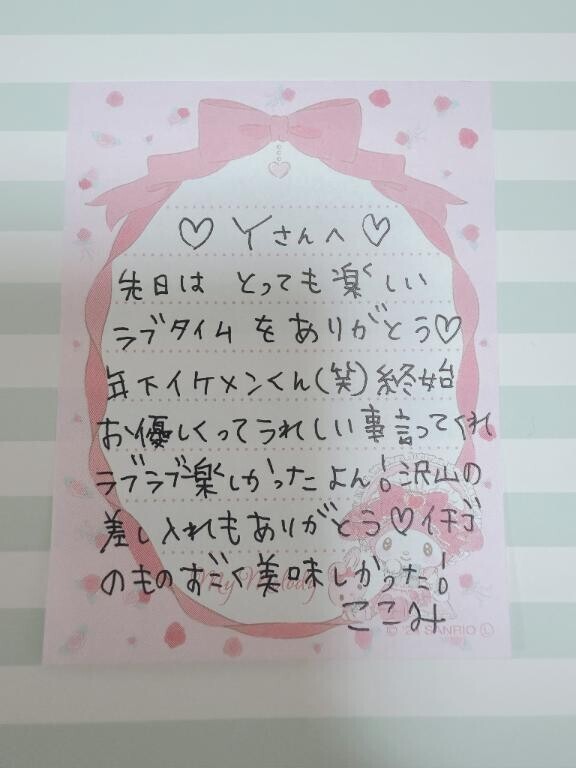 ♡ Yさんへ ♡
先日は とっても楽しい
ラブタイムをありがとう♡
年下イケメンくん(笑)終始
お優しくってうれしい事言ってくれ
ラブラブ楽しかったよん!沢山の
差し入れもありがとう♡イチゴ
のものすごく美味しかった!
My Melody
ここみ
© '24 SANRIO Ⓛ